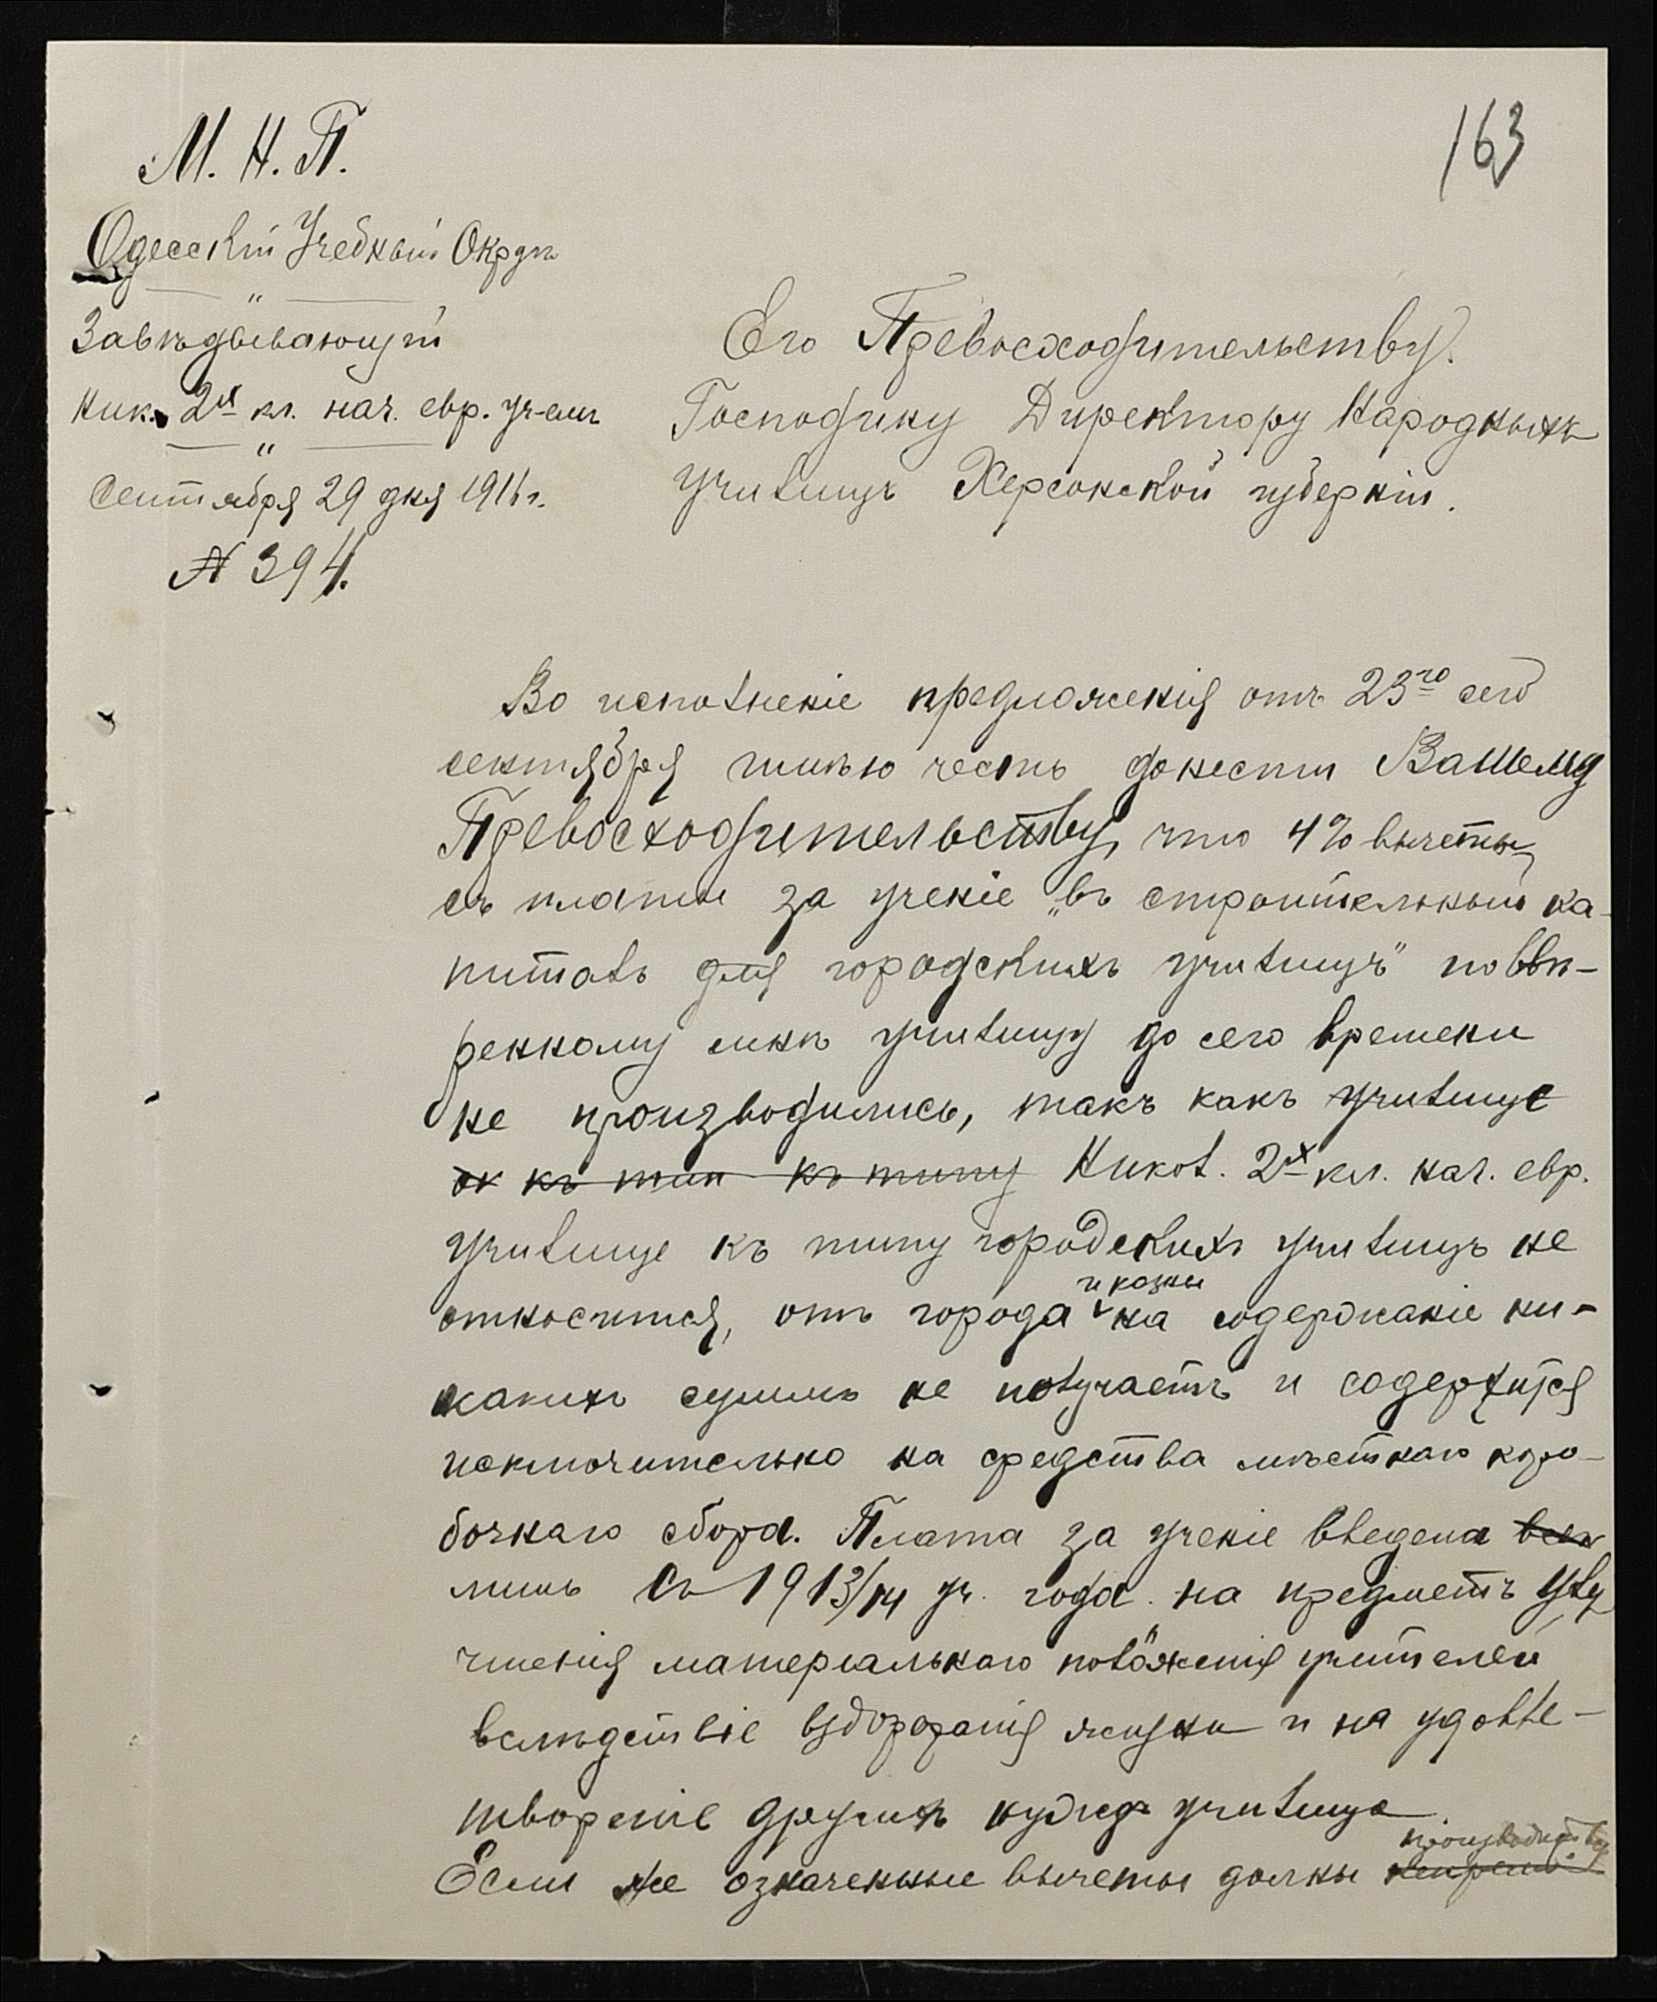 163
М. Н. П.
Одесскій Учебный Округъ
"
Завѣдывающій
Ник. 2х кл. нач. евр. уч-емъ
"
Сентября 29 дня 1916 г.
№ 394.
Его Превосходительству.
Господину Директору Народныхъ
училищъ Херсонской губерніи.
Во исполненіе предложенія отъ 23го сего
сентября имѣю честь донести Вашему
Превосходительству, что 4% вычеты
съ платы за ученіе „въ строительный ка-
питалъ для городскихъ училищъ" по ввѣ-
ренному мнѣ училищу до сего времени
не производились, такъ какъ училище
ок къ тип къ типу Никол. 2х кл. нач. евр.
училище къ типу городскихъ училищъ не
относится, отъ города и казны на содержаніе ни-
какихъ суммъ не получаетъ и содержится
исключительно на средства мѣстнаго коро-
бочнаго сбора. Плата за ученіе введена
лишь съ 1913/14 уч. года на предметъ улу
чшенія матеріальнаго положенія учителей
вслѣдствіе вздорожанія жизни и на удовле-
твореніе другихъ нуждъ училища.
Если же означенные вычеты должны производиться